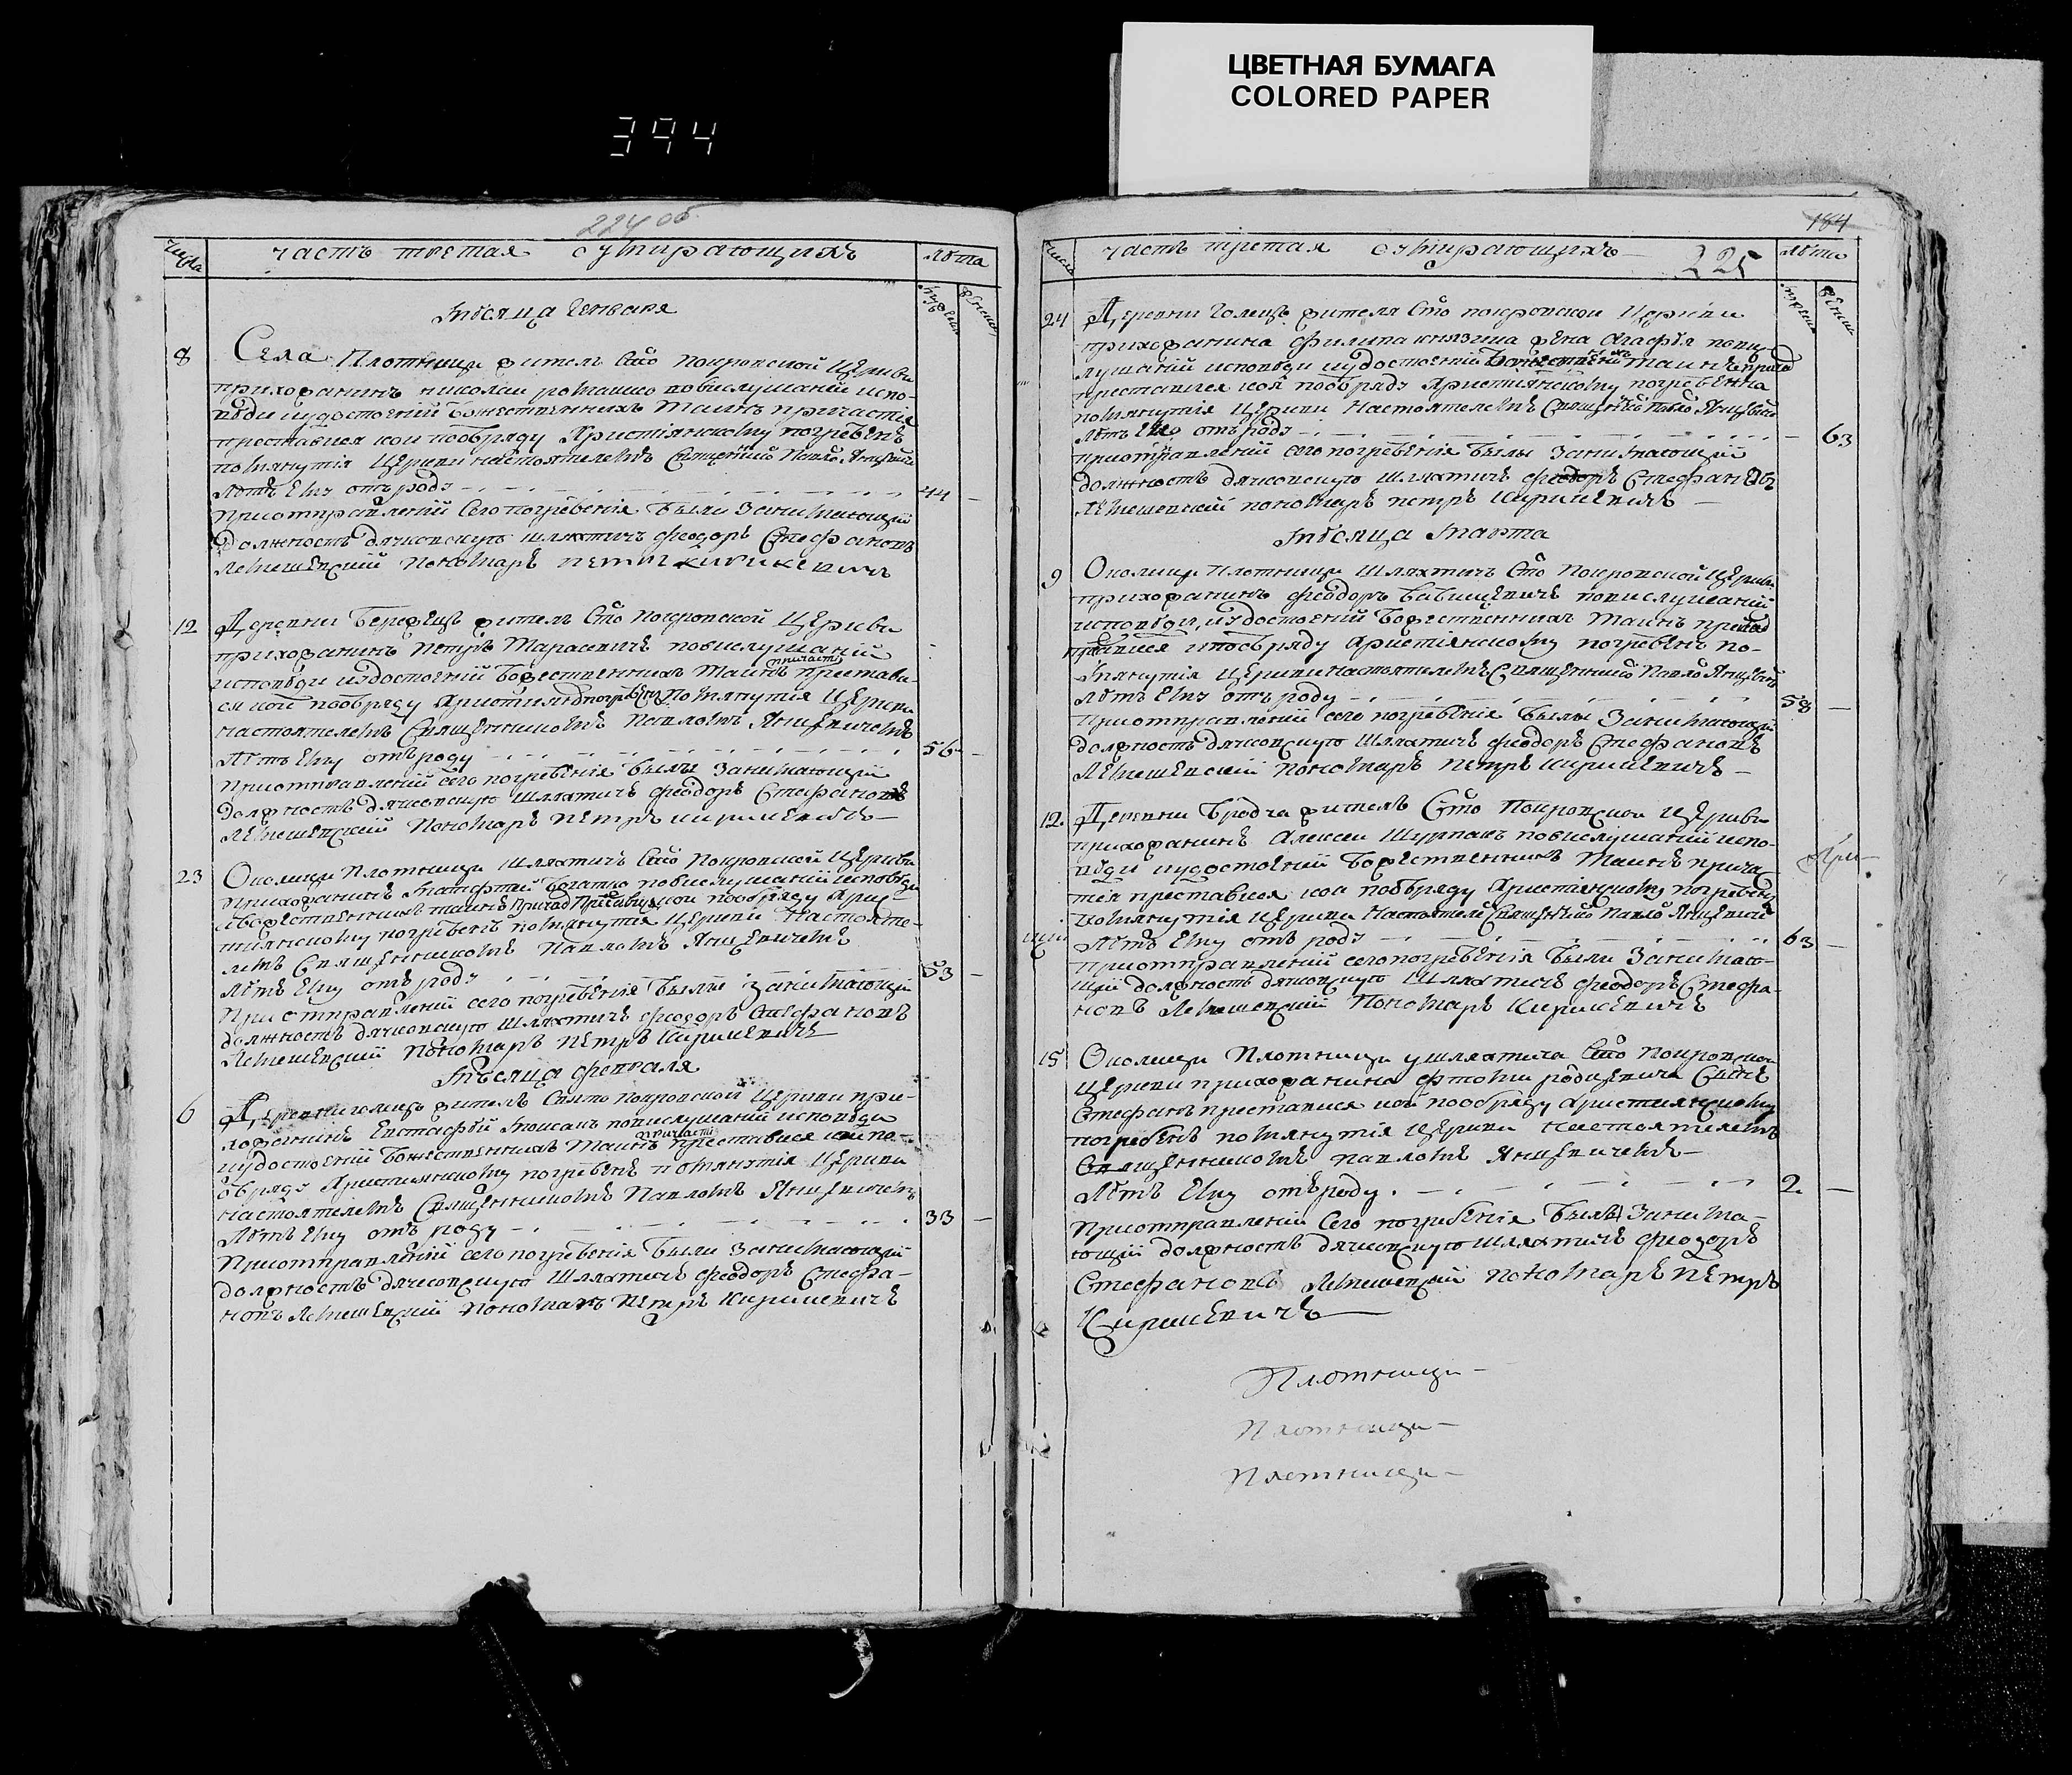 ЦВЕТНАЯ БУМАГА
COLORED PAPER
394
224 об
числа часть третая о умирающихъ лѣта
мѣсяца Генваря
8 Села Плотницы житель Свто Покровской Церкви
прихожанинъ николаи ромашко повислушаніи испо-
вѣди иудостоеніи Божественнихъ Таинъ причастія
преставися кои пообряду Християнскому погребенъ
помянутія Церкви настоятелемъ Павло Янцевиче
Лѣтъ Ему отъ роду 44 —
приотправленіи Сего погребенія были занимающій
Должность дячковскую шляхтичъ Феодоръ Стефановъ
Лемешевскій Пономарь петръ кирикевичъ
12 Деревни Бережцъ житель Свто Покровской Церкви
прихожанинъ Петръ Тарасевичъ повислушаніи
исповѣди иудостоеніи Божественнихъ Таинъ причасти престави-
ся кои пообряду погребенъ Помянутія Церкви
настоятелемъ Священникомъ Павломъ Янцевичемъ
Лѣтъ Ему отъ роду 56 —
приотправленіи сего погребенія были занимающій
должность дячковскую шляхтичъ Феодоръ Стефановъ
Лемешевскій Пономарь Петръ кирикевичъ —
23 Околици Плотници шляхтичъ Свто Покровской Церкви
прихожанинъ Богатко повислушаніи исповѣди
Божественнихъ таинъ кои пообряду Хрис-
тиянскому погребенъ помянутія Церкви Настояте-
лемъ Священникомъ Павломъ Янцевичемъ
Лѣтъ Ему отъ роду 53 —
При отправленіи сего погребенія были занимающій
должность дячковскую шляхтичъ Феодоръ Стефановъ
Лемешевскій Пономарь Петръ Кирикевичъ
Мѣсяца февраля
6 Деревни голецъ житель Свято Покровской Церкви при-
хожанинъ Евстафій повислушаніи исповѣди
иудостоеніи Божественнихъ Таинъ причасти преставися кои по-
обряду Християнскому погребенъ помянутія Церкви
настоятелемъ Священникомъ Павломъ Янцевичемъ
Лѣтъ Ему отъ роду 33 —
Приотправленіи сего погребенія были занимающій
должность дячковскую Шляхтичъ Феодоръ Стефа-
новъ Лемешевскій Пономаръ Петръ Кирикевичъ
184
числа часть третая о умирающихъ — 225 лѣта
24 Деревни Голецъ жителя Свто покровской Церкви
прихожанина Филипа князика жена Агафія пови-
слушаніи исповѣди иудостоеніи Божественнихъ таинъ
преставися коя пообряду Християнскому погребенна
помянутія Церкви Настоятелемъ Павло Янцевиче
Лѣтъ Ей отъ роду — 63
приотправленіи сего погребенія были занимающій
должность дячковскую шляхтичъ Феодоръ Стефановъ
Лемешевскій пономарь петръ Кирикевичъ —
Мѣсяца Марта
9 Околици Плотници Шляхтичъ Свто Покровской Церкви
прихожанинъ Феодоръ повислушаніи
исповѣди, иудостоеніи Божественнихъ Таинъ
кпообряду Християнскому погребенъ по-
мянутія Церкви Настоятелемъ Священникомъ Павло Янцевичемъ
Лѣтъ Ему отъ роду 58 —
Приотправленіи сего погребенія были занимающій
должность дячковскую Шляхтичъ Феодоръ Стефановъ
Лемешевскій Пономарь Петръ кирикевичъ —
12. Деревни Бродча житель Свто Покровскои Церкви
прихожанинъ Алексеи Шурпакъ повислушаніи испо-
вѣди иудостоеніи Божественнихъ Таинъ прича
тія преставися кои пообряду Християнскому погребенъ
помянутія Церкви Настоятеле Павло Янцевиче
Лѣтъ Ему отъ роду 63 —
Приотправленіи сего погребенія были занимаю-
щій должность дячковскую Шляхтичъ Феодоръ Стефа-
новъ Лемешевскій Пономарь Кирикевичъ
15 Околици Плотници ушляхтича Свто Покровскои
Церкви прихожанина Родцевича Синъ
Стефанъ преставися кои пообряду християнскому
погребенъ помянутія Церкви настоятелемъ
Священникомъ Павломъ Янцевичемъ —
Лѣтъ Ему отъ роду 2. —
Приотправленіи Сего погребенія были занима-
ющій должность дячковскую шляхтичъ Феодоръ
Стефановъ Лемешевскій пономарь Петръ
Кирикевичъ
Плотници —
Плотници —
Плотници —